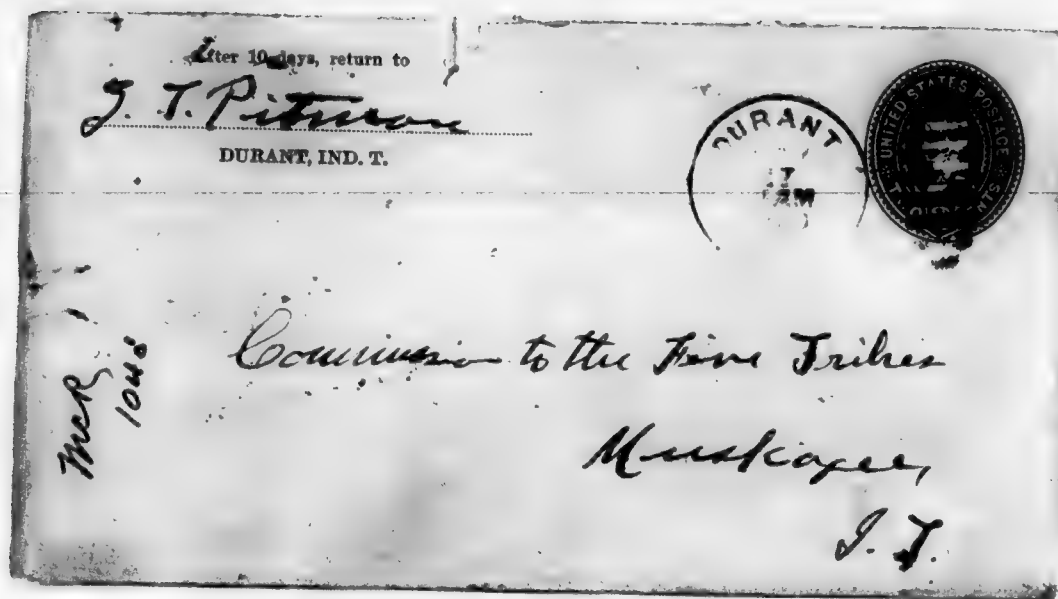 After 10 days, return to
J. T. Pitman
DURANT, IND. T.
DURANT
7
AM
UNITED STATES POSTAGE
CENTS
Commission to the Five Tribes
Muskogee,
I. T.
McR
1048